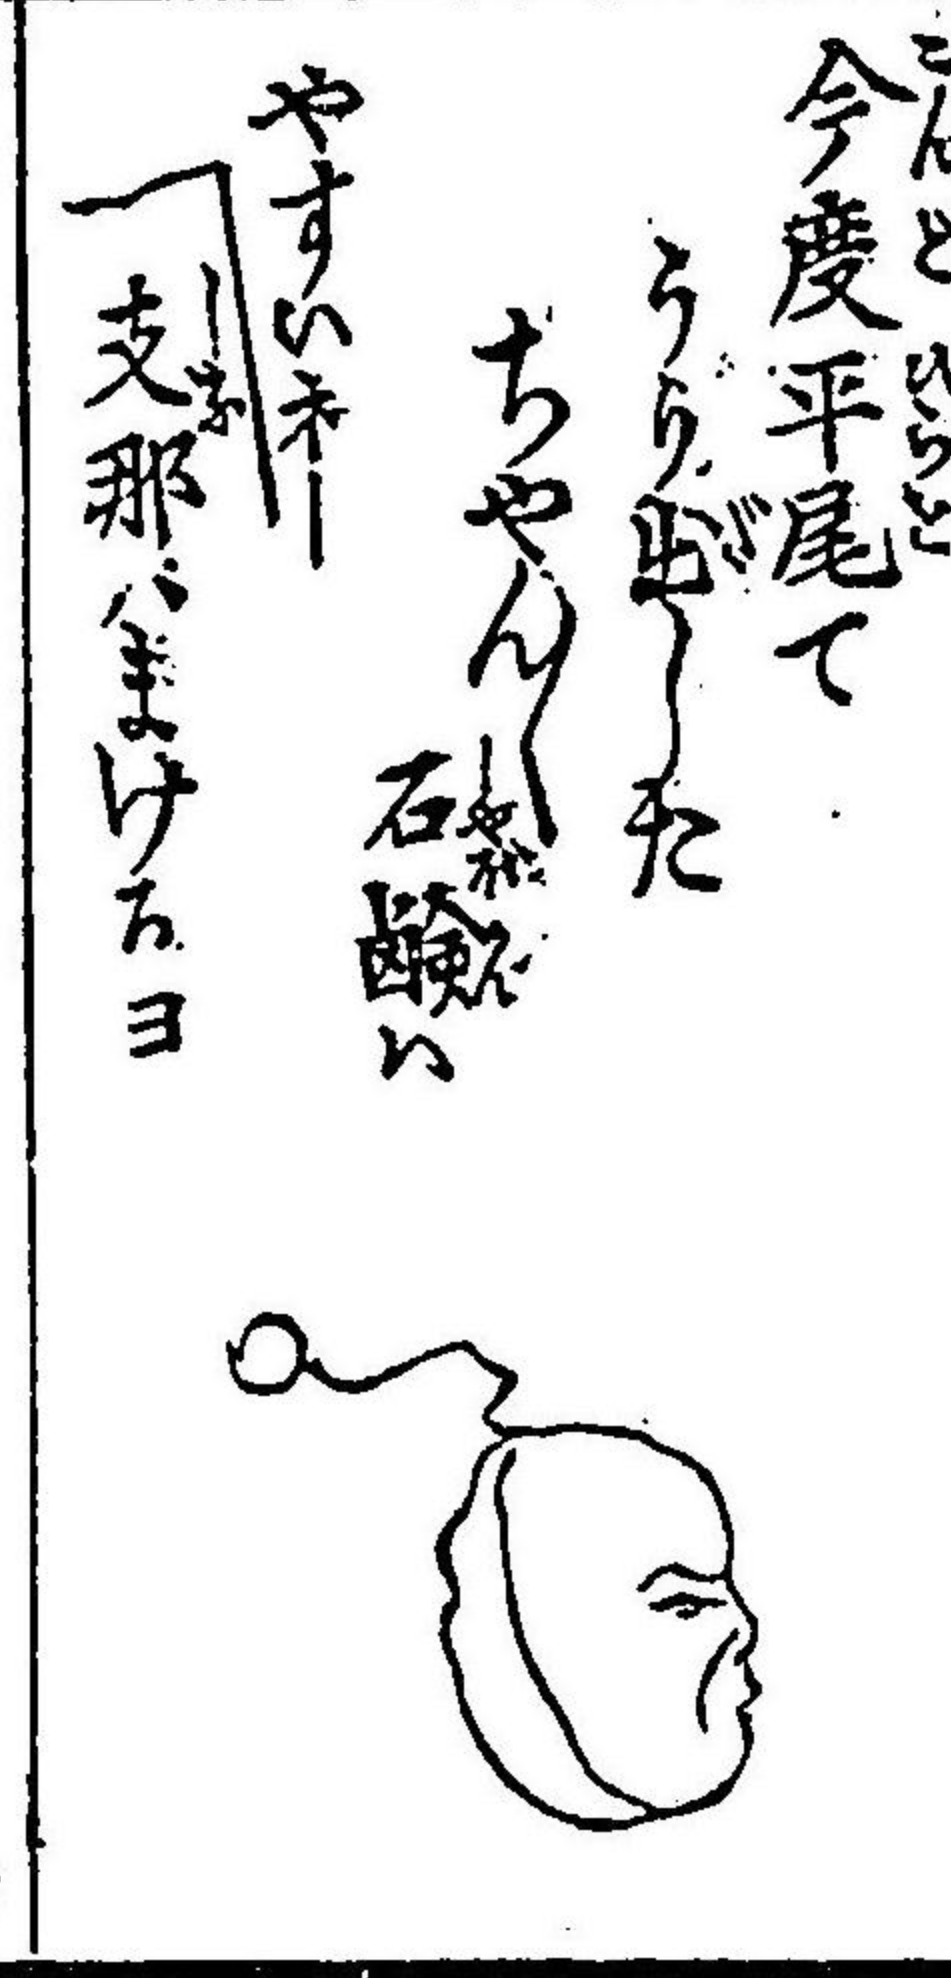 今度平尾て
うり出した
ちやん〱石鹸い
やすいネー
支那ハまけろヨ